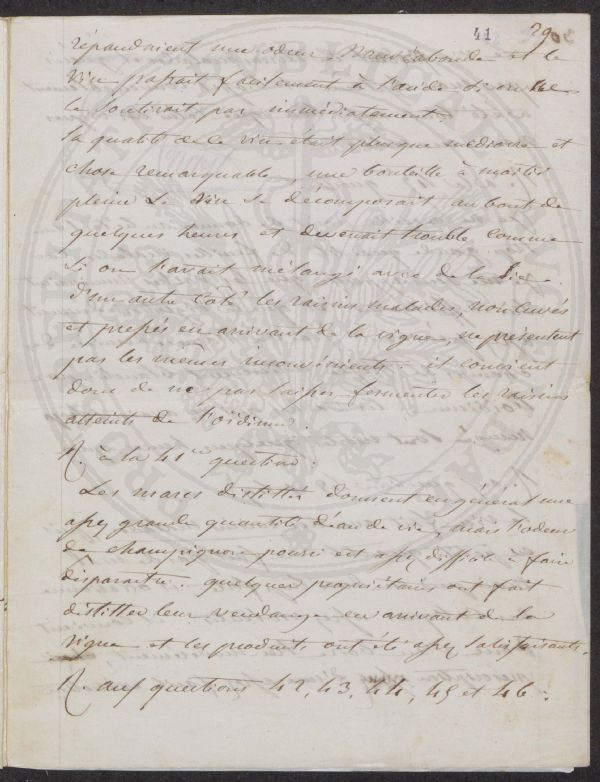 41 29
répandaient une odeur Nauséabonde et le
Vin passait facilement à l'acide si on ne
le soutirait pas immédiatement.
la qualité de le vin était plus que médiocre et
chose remarquable, une bouteille à moitié
pleine le Vin se décomposait au bout de
quelques heures et devenait trouble comme
Si on l'avait mélangé avec de la lie.
D'un autre Côté les raisins malades, non cuvés
et pressés en arrivant de la vigne, ne présentent
pas les mêmes inconvénients. il convient
donc de ne pas laisser fermenter les raisins
atteints de l'oïdium.
R. à la 41e question.
Les marcs distillés donnent en général une
assez grande quantité d'eau de vie, mais l'odeur
de champignon pourri est assez difficile à faire
disparaitre. quelques propriétaires ont fait
distiller leur vendange en arrivant de la
vigne et les produits ont été assez satisfaisants.
R. aux questions 42, 43, 44, 45 et 46.